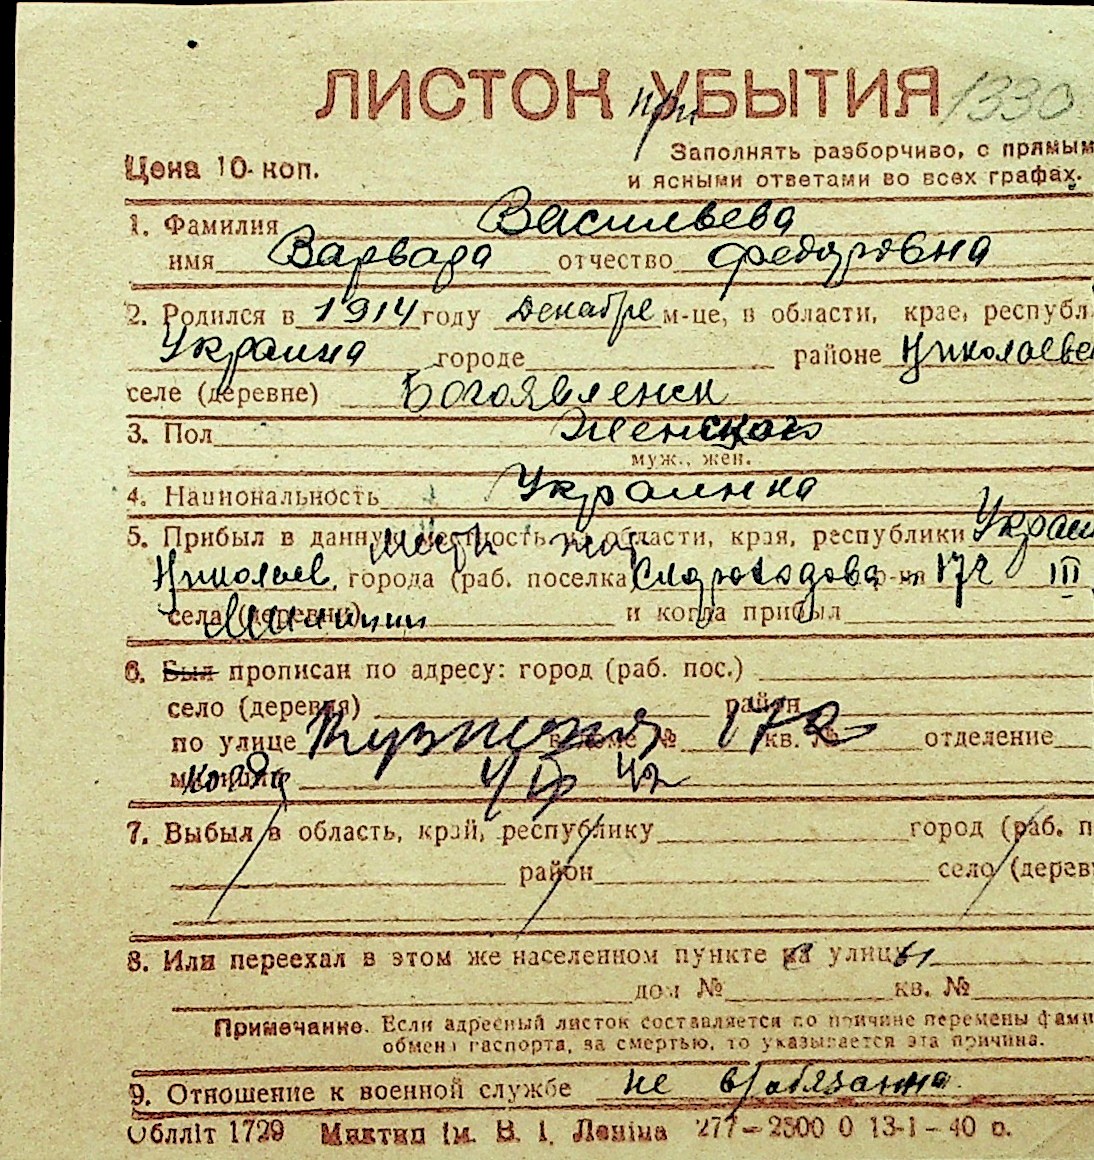 ЛИСТОК УБЫТИЯ 1330
при
Цена 10 коп.
Заполнять разборчиво, с прямым
и ясными ответами во всех графах.
1. Фамилия Васильева
имя Варвара отчество Федоровна
2. Родился в 1914 году Декабре м-це, в области, крае, республ
Украина городе районе Николаевс
селе (деревне) Богоявленск
3. Пол Женского
муж., жен.
4. Национальность Украинка
5. Прибыл в данную местность из области, края, республики Украи
Николаев, города (раб. поселка) Слободовая р-на 172 III
села (деревни) и когда прибыл
6. Был прописан по адресу: город (раб. пос.)
село (деревня) район
по улице в доме № 172 кв. № отделение
милиции
7. Выбыл в область, край, республику город (раб. п
район село (дерев
8. Или переехал в этом же населенном пункте на улицу
дом № кв. №
Примечание. Если адресный листок составляется по причине перемены фами
обмена паспорта, за смертью, то указывается эта причина.
9. Отношение к военной службе не в/обязанна
Облліт 1729 Миктип ім. В. І. Леніна 277—2500 0 13-1-40 р.